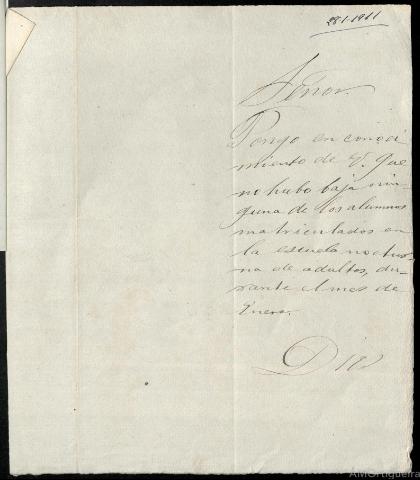 28-1-1911
Señor.
Pongo en conoci
miento de V. que
no hubo baja nin-
guna de los alumnos
matriculados en
la escuela noctur-
na de adultos, du-
rante el mes de
Enero.
Dios
AMOrtigueira